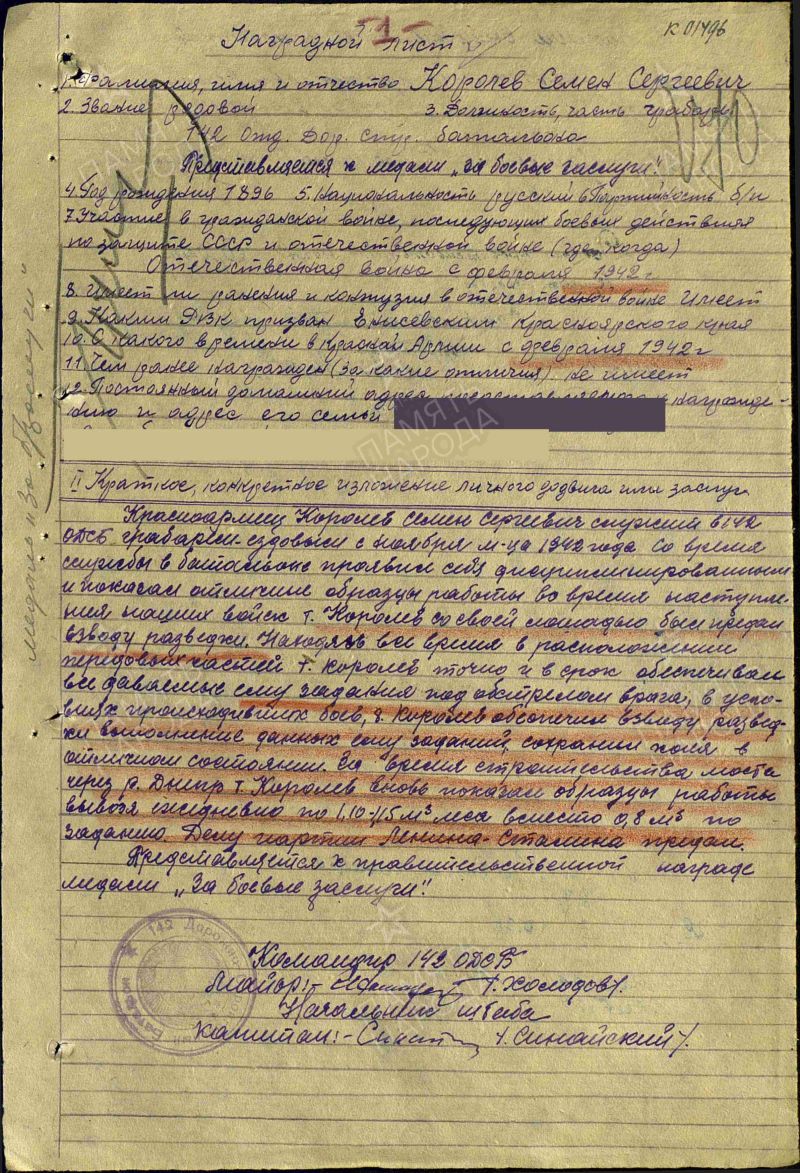 -1-
К 01496
Наградной лист
1. Фамилия, имя и отчество Королев Семен Сергеевич
2. Звание рядовой 3. Должность, часть грабарь
142 отд. дор. стр. батальона
Представляется к медали „За боевые заслуги".
4. Год рождения 1896 5. национальность русский 6. Партийность б/п
7. Участие в гражданской войне, последующих боевых действиях
по защите СССР и отечественной войне (где, когда)
Отечественная война с февраля 1942 г
8. Имеет ли ранения и контузия в отечественной войне Имеет
9. Каким РВК призван Енисевским Красноярского края
10. С какого времени в Красной Армии с февраля 1942 г
11. Чем ранее награжден (за какие отличия) не имеет
12. Постоянный домашний адрес к награжде-
нию и адрес его семьи
II Краткое, конкретное изложение личного подвига или заслуг.
Красноармеец Королев Семен Сергеевич служит в 142
ОДСБ грабарем ездовым с ноября м-ца 1942 года. За время
службы в батальоне проявил себя дисциплинированным
и показал отличные образцы работы во время наступле-
ния наших войск т. Королев со своей лошадью был предан
взводу разведки. Находясь все время в расположении
передовых частей т. Королев точно и в срок обеспечивал
все даваемые ему задания под обстрелом врага, в усло-
виях происходивших боев, т. Королев обеспечил взводу развед-
ки выполнение данных ему заданий, сохранил коня в
отличном состоянии. За время строительства моста
через р. Днепр т. Королев вновь показал образцы работы
вывозя ежедневно по 1,10-1,15 м³ леса вместо 0,8 м³ по
заданию. Делу партии Ленина-Сталина предан.
Представляется к правительственной награде
медали „За боевые заслуги".
Командир 142 ОДСБ
Майор: /Холодов/.
Начальник штаба
капитан:- /Синайский/.
медаль „За б/заслуги"
142
ПАМЯТЬ
НАРОДА